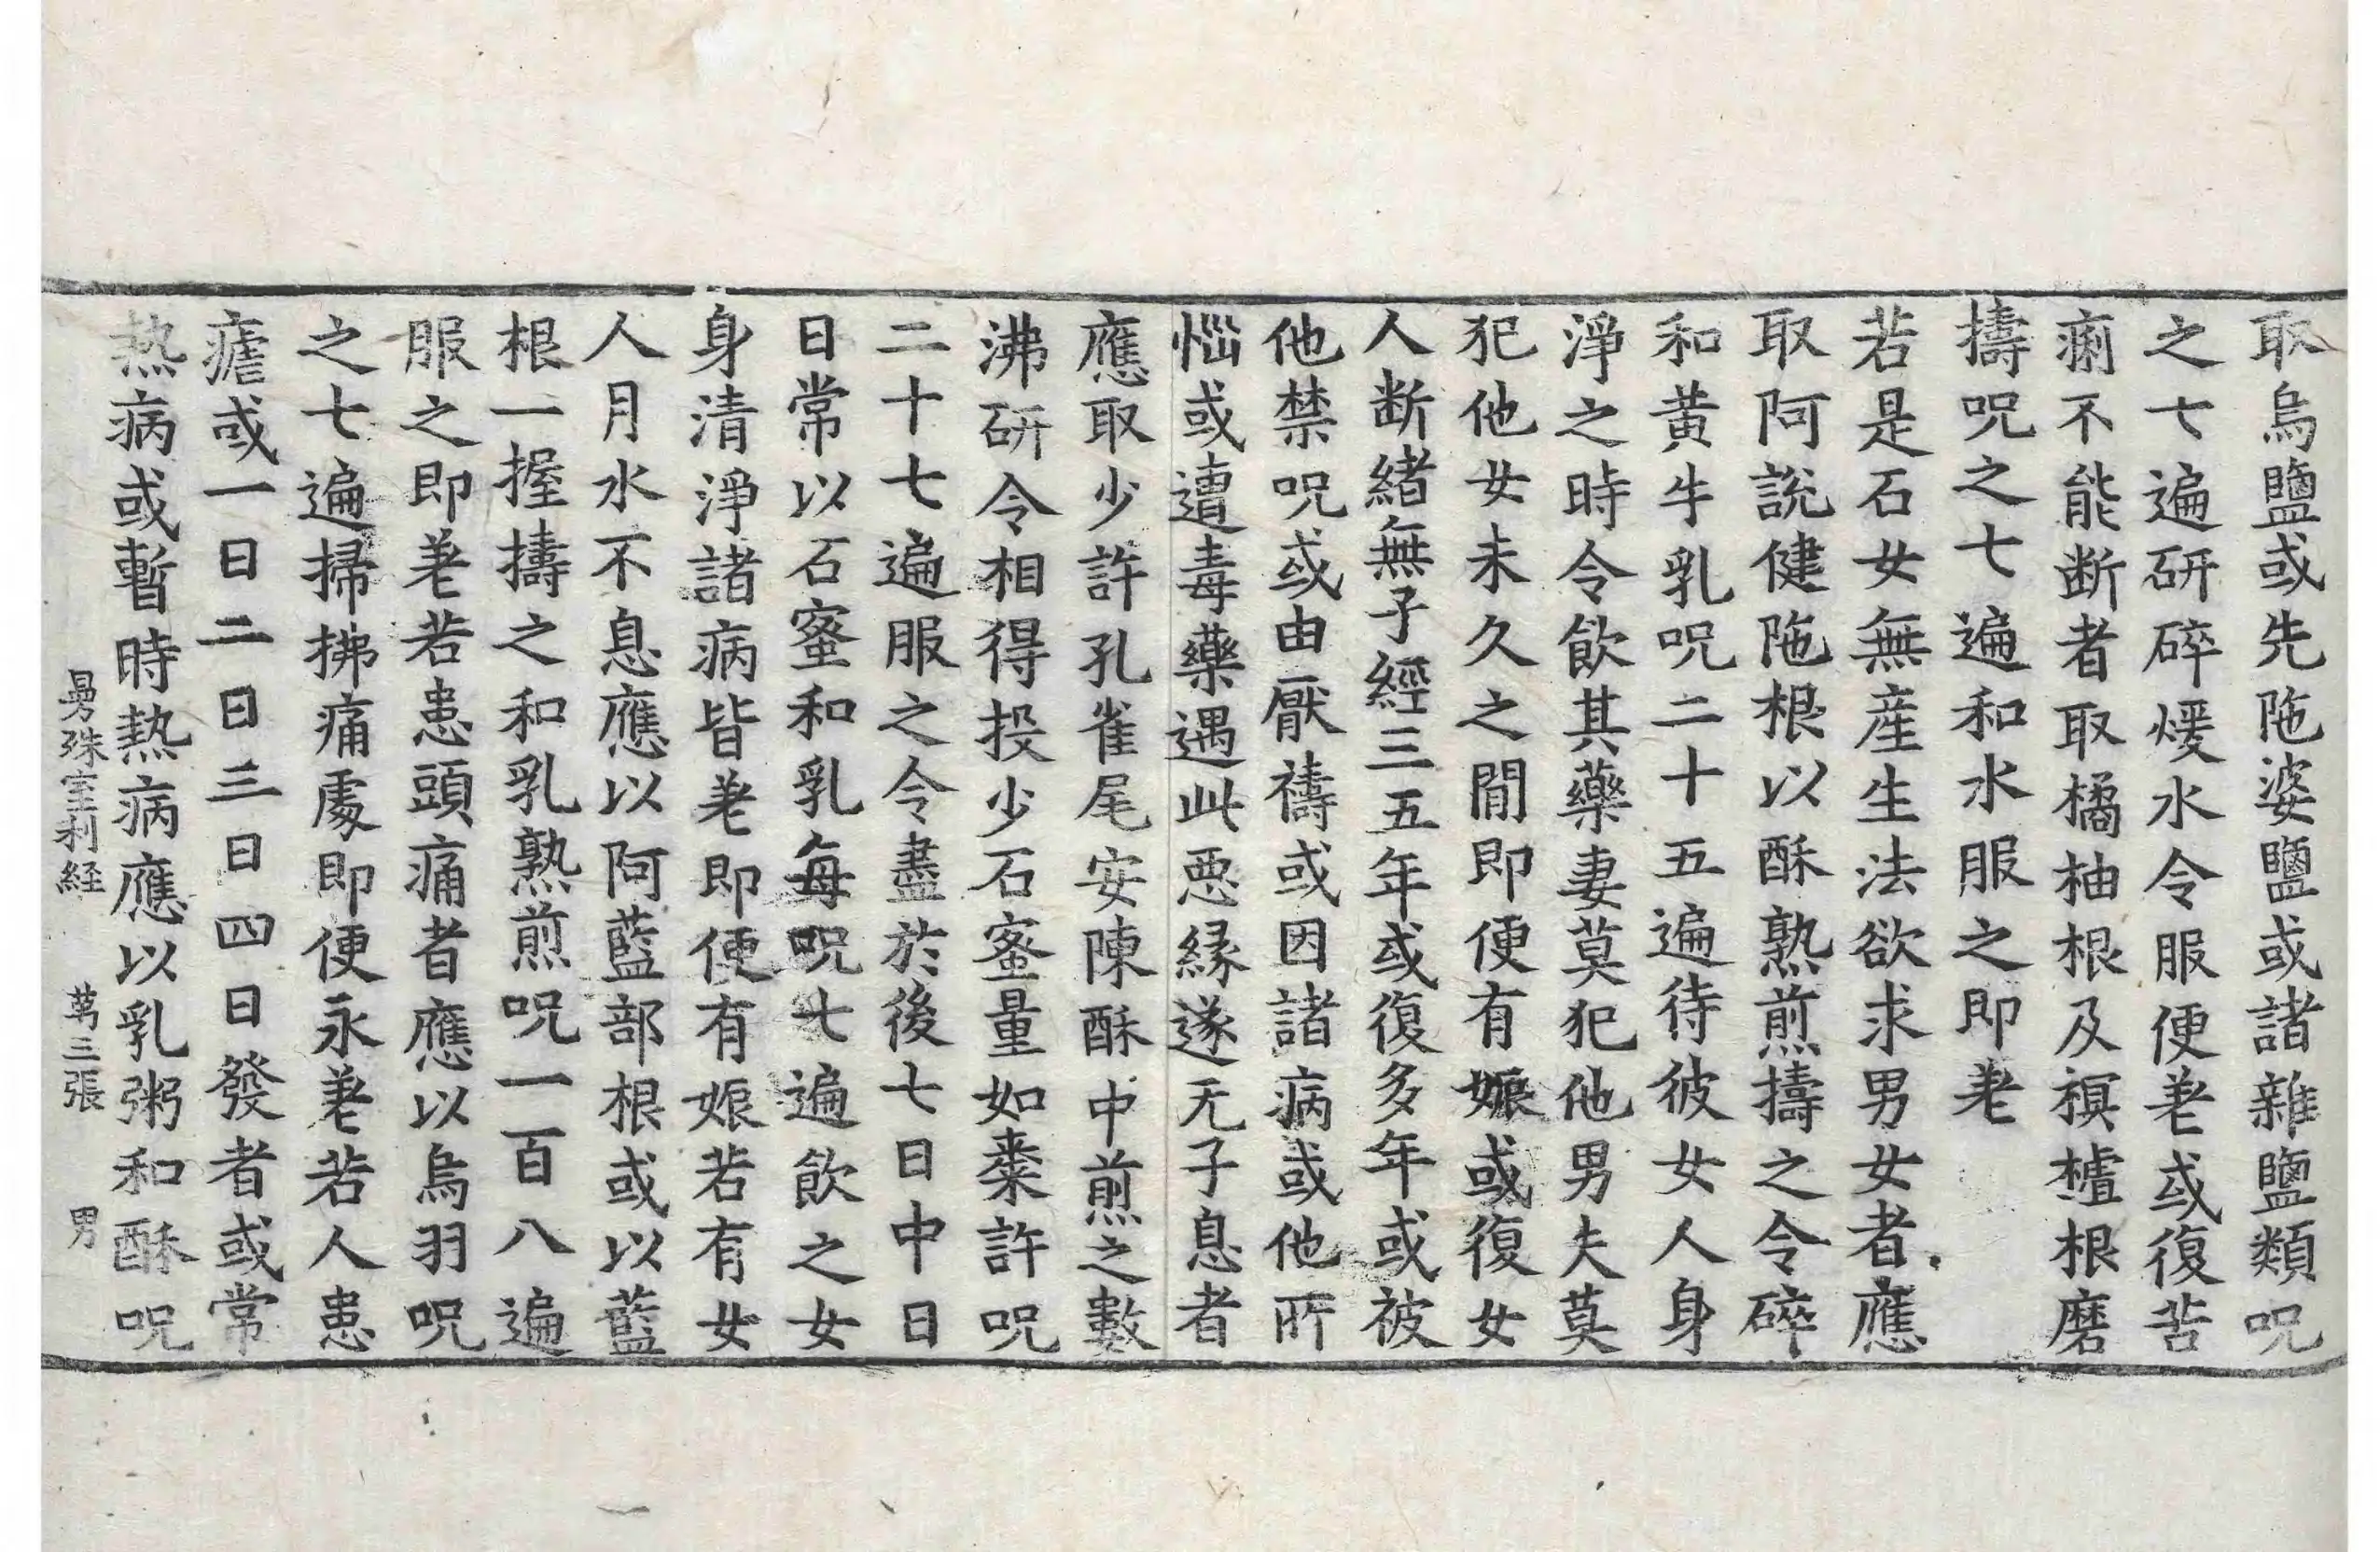 取烏鹽或先陁婆鹽或諸雜鹽類呪
之七遍研碎煖水令服便差或復苦
痢不能断者取橘柚根及榠樝根磨
擣呪之七遍和水服之即差
若是石女無産生法欲求男女者應
取阿説健陁根以酥熟煎擣之令碎
和黄牛乳呪二十五遍待彼女人身
淨之時令飲其藥妻莫犯他男夫莫
犯他女未久之間即便有娠或復女
人断緒無子經三五年或復多年或被
他禁呪或由厭禱或因諸病或他所
惱或遭毒藥遇此悪縁遂无子息者
應取少許孔雀尾安陳酥中煎之數
沸研令相得投少石蜜量如棗許呪
二十七遍服之令盡於後七日中日
日常以石蜜和乳每呪七遍飲之女
身清淨諸病皆差即便有娠若有女
人月水不息應以阿藍部根或以藍
根一握擣之和乳熟煎呪一百八遍
服之即差若患頭痛者應以烏羽呪
之七遍掃拂痛處即便永差若人患
瘧或一日二日三日四日發者或常
熱病或暫時熱病應以乳粥和酥呪
曼殊室利経 苐三張 男